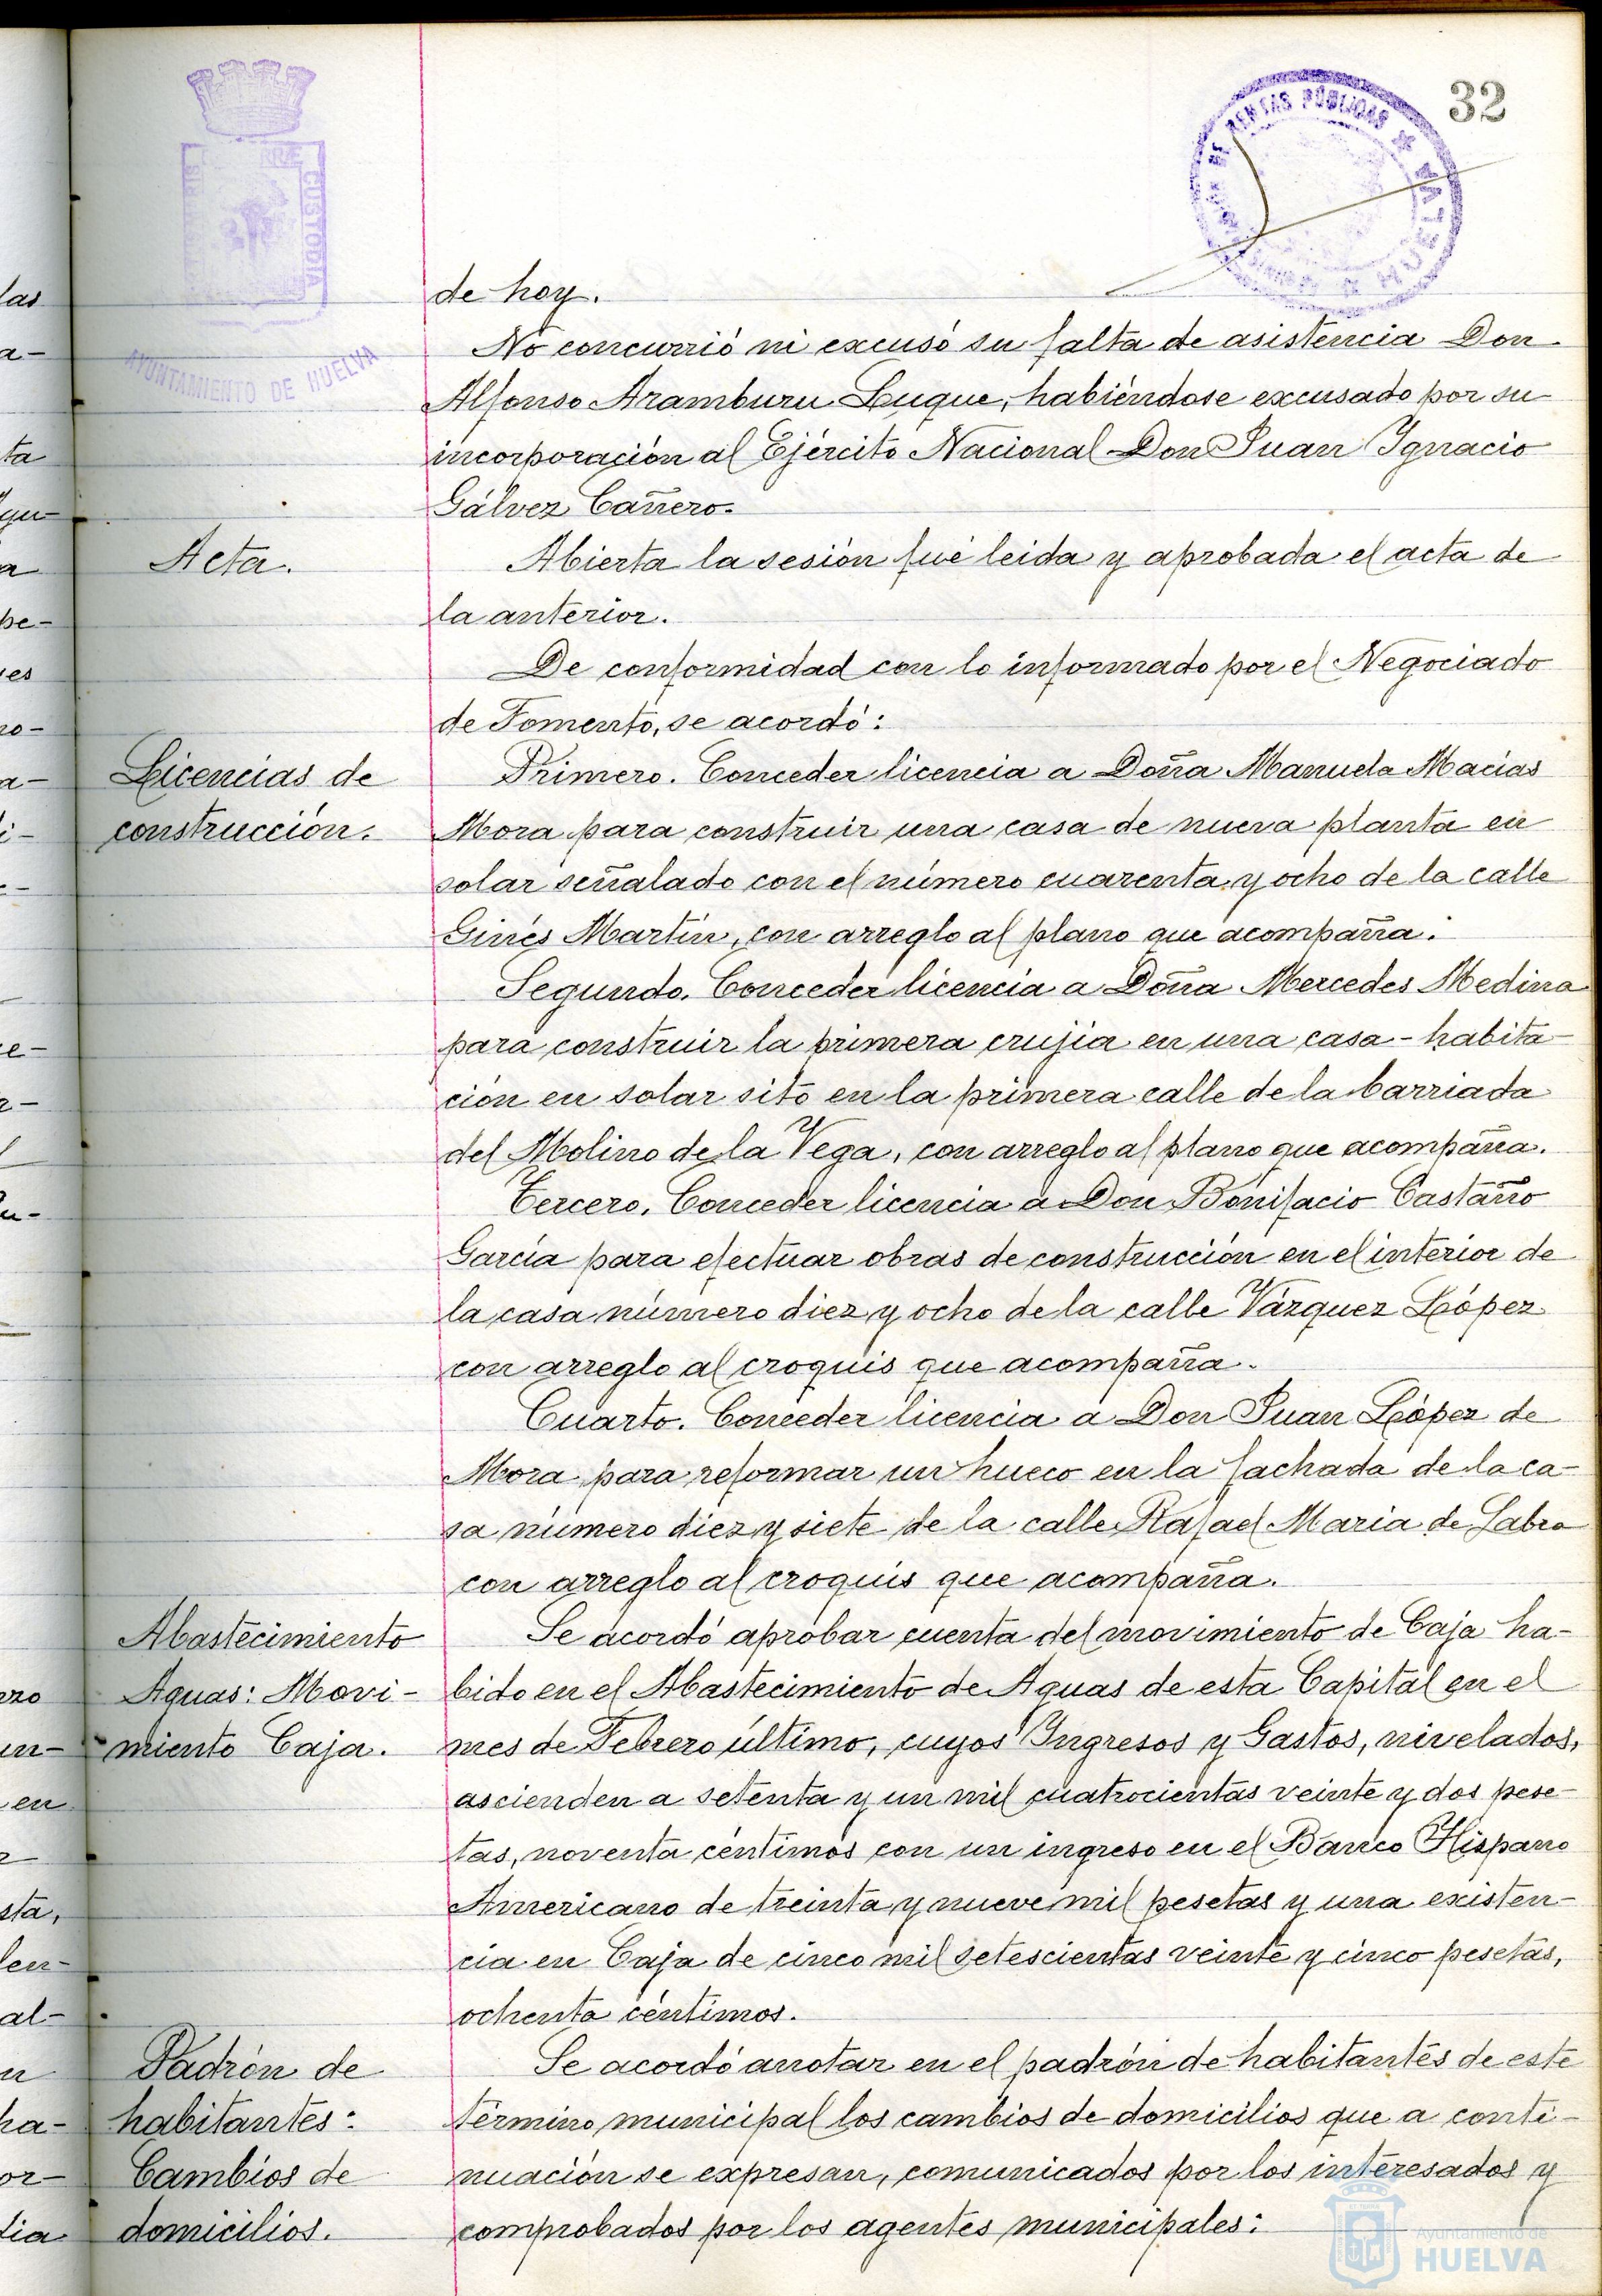 32
RENTAS PÚBLICAS
HUELVA
CUSTODIA
AYUNTAMIENTO DE HUELVA
de hoy.
No concurrió ni excusó su falta de asistencia Don
Alfonso Aramburu Luque, habiéndose excusado por su
incorporación al Ejército Nacional Don Juan Ignacio
Gálvez Cañero.
Acta.
Abierta la sesión fué leida y aprobada el acta de
la anterior.
De conformidad con lo informado por el Negociado
de Fomento, se acordó:
Licencias de
construcción.
Primero. Conceder licencia a Doña Manuela Macias
Mora para construir una casa de nueva planta en
solar señalado con el número cuarenta y ocho de la calle
Ginés Martín, con arreglo al plano que acompaña.
Segundo. Conceder licencia a Doña Mercedes Medina
para construir la primera crujia en una casa-habita-
ción en solar sito en la primera calle de la barriada
del Molino de la Vega, con arreglo al plano que acompaña.
Tercero. Conceder licencia a Don Bonifacio Castaño
García para efectuar obras de construcción en el interior de
la casa número diez y ocho de la calle Vázquez López
con arreglo al croquis que acompaña.
Cuarto. Conceder licencia a Don Juan López de
Mora para reformar un hueco en la fachada de la ca-
sa número diez y siete de la calle Rafael Maria de Labra
con arreglo al croquis que acompaña.
Abastecimiento
Aguas: Movi-
miento Caja.
Se acordó aprobar cuenta del movimiento de Caja ha-
bido en el Abastecimiento de Aguas de esta Capital en el
mes de Febrero último, cuyos Ingresos y Gastos, nivelados,
ascienden a setenta y un mil cuatrocientas veinte y dos pese-
tas, noventa céntimos con un ingreso en el Banco Hispano
Americano de treinta y nueve mil pesetas y una existen-
cia en Caja de cinco mil setescientas veinte y cinco pesetas,
ochenta céntimos.
Padrón de
habitantes:
Cambios de
domicilios.
Se acordó anotar en el padrón de habitantes de este
término municipal los cambios de domicilios que a conti-
nuación se expresan, comunicados por los interesados y
comprobados por los agentes municipales:
Ayuntamiento de
HUELVA